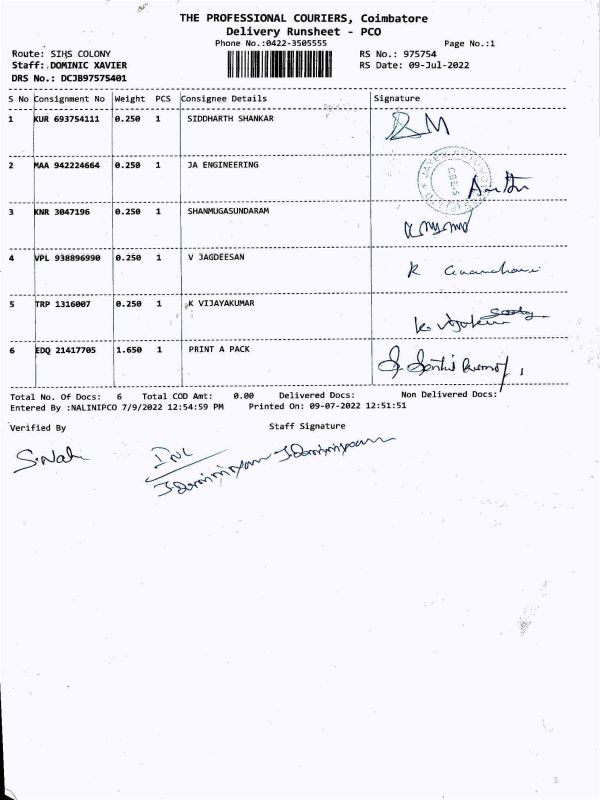 THE PROFESSIONAL COURIERS, Coimbatore
Delivery Runsheet - PCO
Phone No.:0422-3505555 Page No.:1
Route: SIHS COLONY RS No.: 975754
Staff: DOMINIC XAVIER RS Date: 09-Jul-2022
DRS No.: DCJB97575401
S No Consignment No Weight PCS Consignee Details Signature
1 KUR 693754111 0.250 1 SIDDHARTH SHANKAR
2 MAA 942224664 0.250 1 JA ENGINEERING
3 KNR 3047196 0.250 1 SHANMUGASUNDARAM
4 VPL 938896990 0.250 1 V JAGDEESAN
5 TRP 1316007 0.250 1 K VIJAYAKUMAR
6 EDQ 21417705 1.650 1 PRINT A PACK
Total No. Of Docs: 6 Total COD Amt: 0.00 Delivered Docs: Non Delivered Docs:
Entered By :NALINIPCO 7/9/2022 12:54:59 PM Printed On: 09-07-2022 12:51:51
Verified By Staff Signature